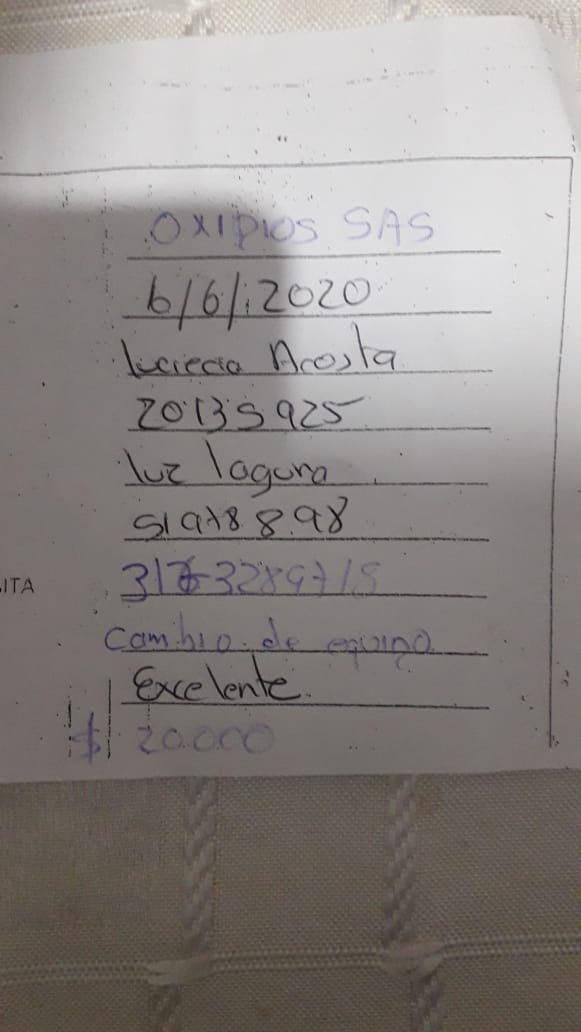 OXIPIOS SAS
6/6/.2020
lucrecia Acosta
20135925
luz laguna
51978898
ITA
Cambio de equipo
Excelente.
$ 20.000